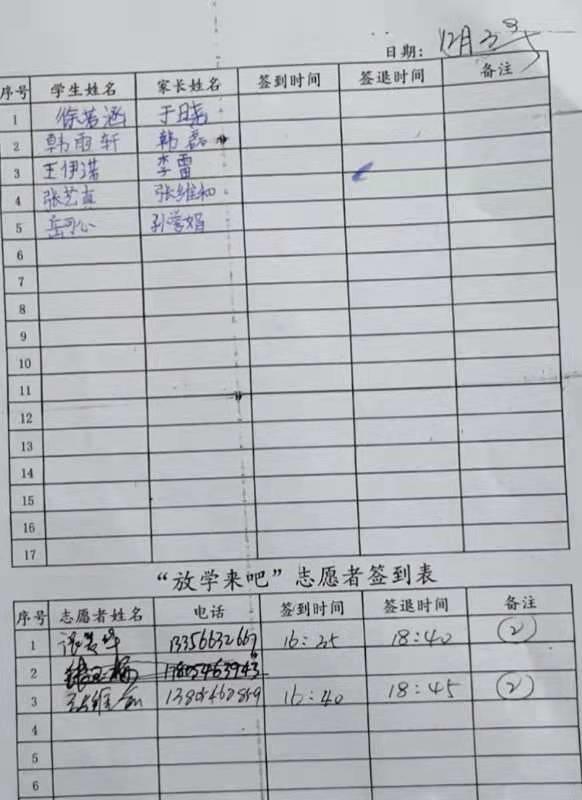 日期: 12月
序号 学生姓名 家长姓名 签到时间 签退时间 备注
1 徐若涵 于晓
2 韩雨轩 韩磊
3 王伊诺 李雷
4 张艺 张维和
5 岳可心 孙学娟
6
7
8
9
10
11
12
13
14
15
16
17
“放学来吧”志愿者签到表
序号 志愿者姓名 电话 签到时间 签退时间 备注
1 13356632667 16:25 18:40 ②
2
3 张维和 16:40 18:45 ②
4
5
6